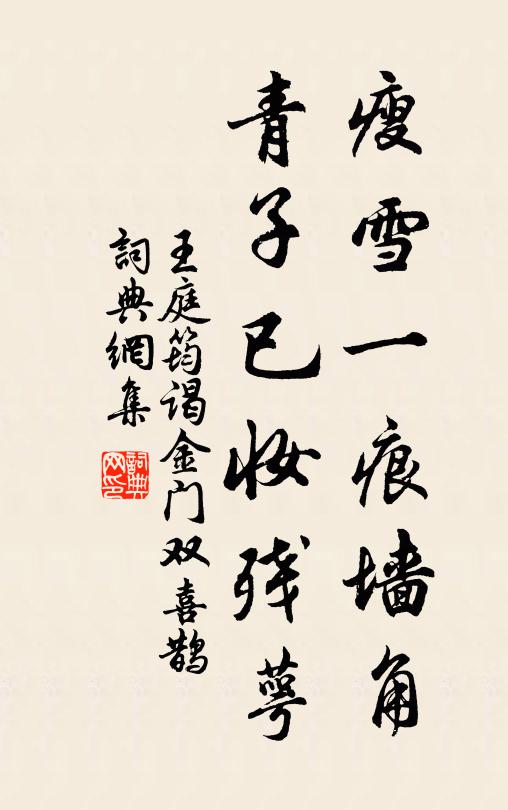 瘦雪一痕墙角
青子已妆残萼
王庭筠谒金门双喜鹊
詞典網集
詞典网印